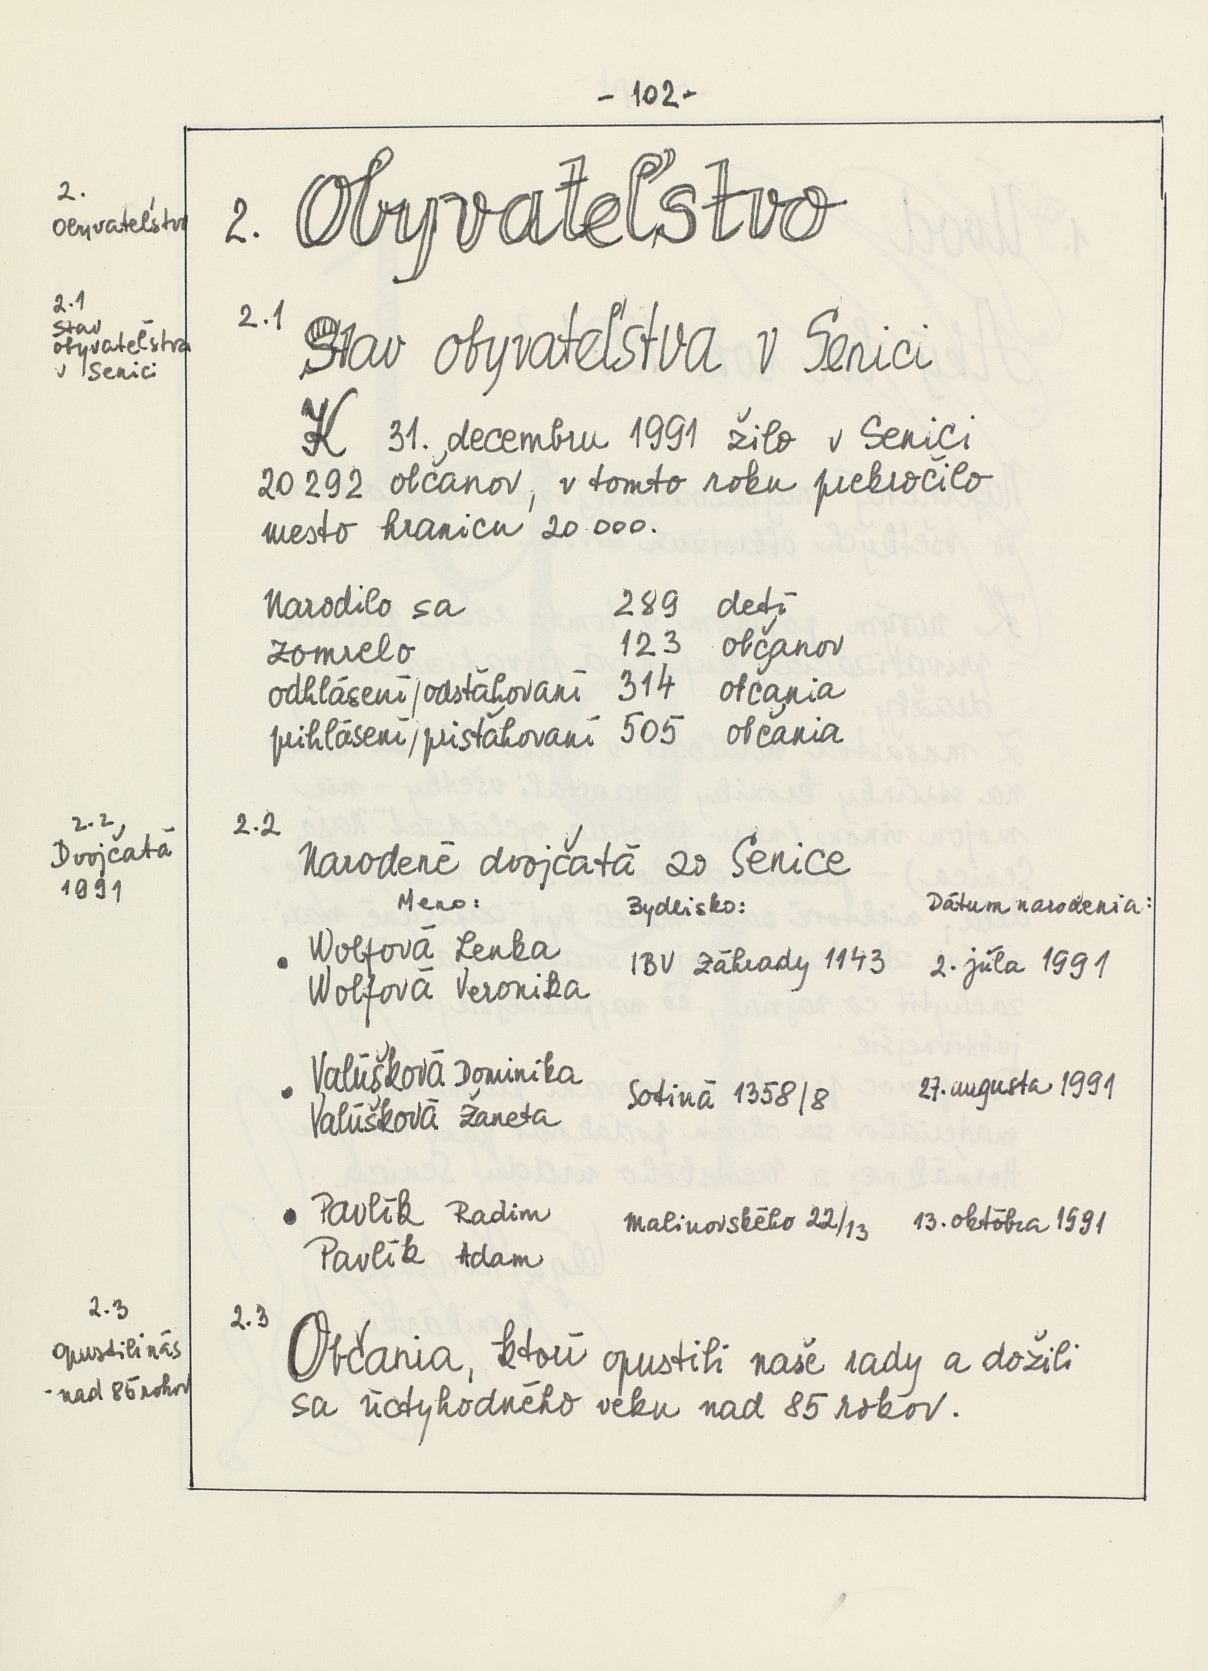 - 102 -
2.
Obyvateľstvo
2. Obyvateľstvo
2.1
Stav
obyvateľstva
v Senici
2.1 Stav obyvateľstva v Senici
K 31. decembru 1991 žilo v Senici
20 292 občanov, v tomto roku prekročilo
mesto hranicu 20 000.
Narodilo sa 289 detí
zomrelo 123 občanov
odhlásení/odsťahovaní 314 občania
prihlásení/prisťahovaní 505 občania
2.2,
Dvojčatá
1991
2.2 Narodené dvojčatá zo Senice
Meno: Bydlisko: Dátum narodenia:
• Wolfová Lenka
IBV Záhrady 1143 2. júla 1991
Wolfová Veronika
• Valúšková Dominika
Sotiná 1358/8 27. augusta 1991
Valúšková Žaneta
• Pavlík Radim Malinovského 22/13 13. októbra 1991
Pavlík Adam
2.3
opustili nás
- nad 85 rokov
2.3 Občania, ktorí opustili naše rady a dožili
sa úctyhodného veku nad 85 rokov.